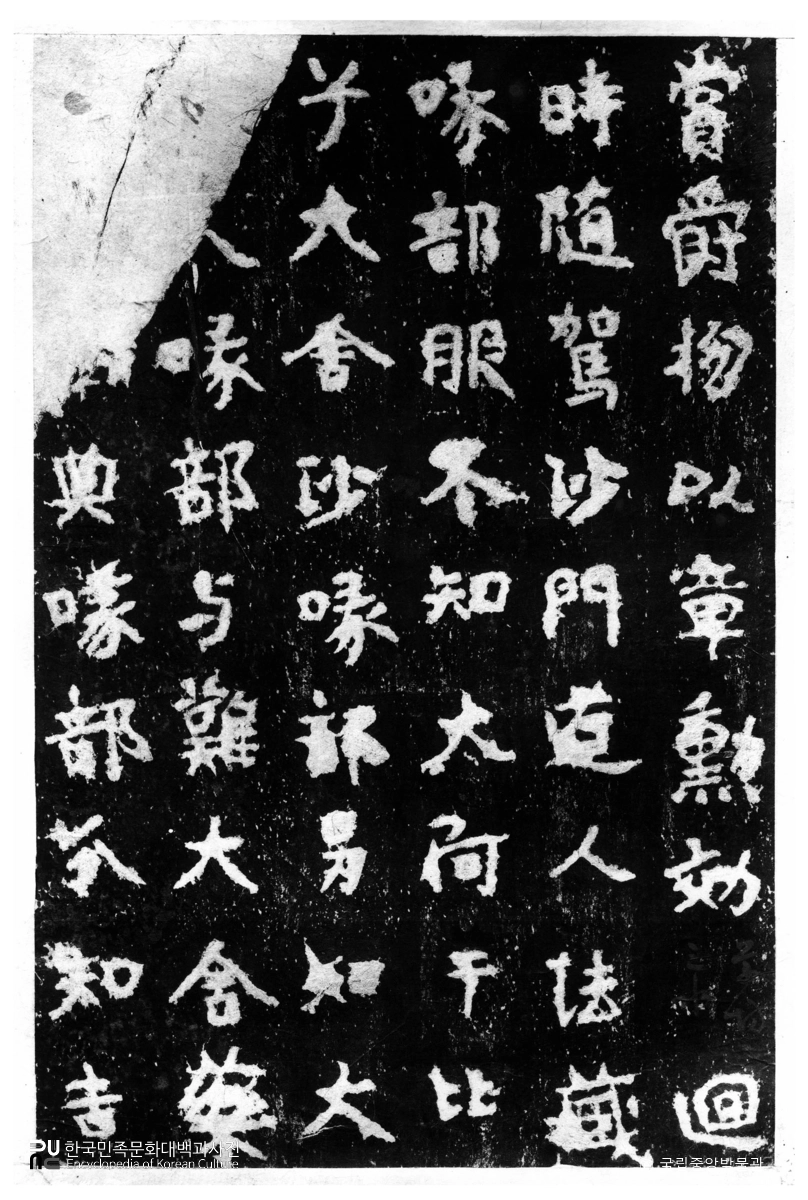 賞爵物以章勳効迴
時隨駕沙門道人法藏
喙部服不知太阿干比
兮大舍沙喙部另知大
人喙部与難大舍藥
典喙部分知吉
한국민족문화대백과사전
Encyclopedia of Korean Culture
국립중앙박물관